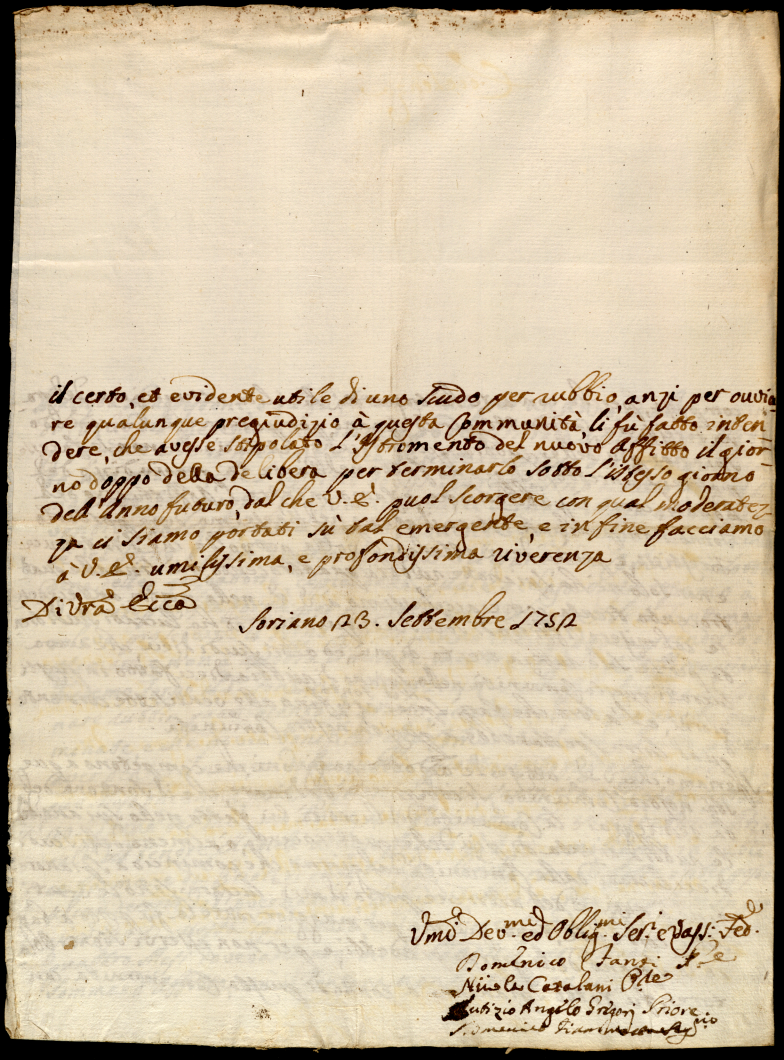 il certo, et evidente utile di uno scudo per rubbio, anzi per ouvia
re qualunque pregiudizio à questa Communità, li fù fatto inten
dere, che avesse stipolato l'Istromento del nuovo Affitto il gior=
no doppo della delibera per terminarlo sotto l'istesso giorno
dell'Anno futuro, dal che V. E. puol scorgere con qual moderatez
za ci siamo portati sù tal emergente, e in fine facciamo
à V. E. umilissima, e profondissima riverenza
Di Vrã Eccã
Soriano 23. Settembre 1752
Vmi Dev.mi ed Oblig.mi Ser.i e Vass.i Fed.
Domenico Fanti P.le
Nicola Catalani P.le
Angelo Grigorj Priore
Domenico